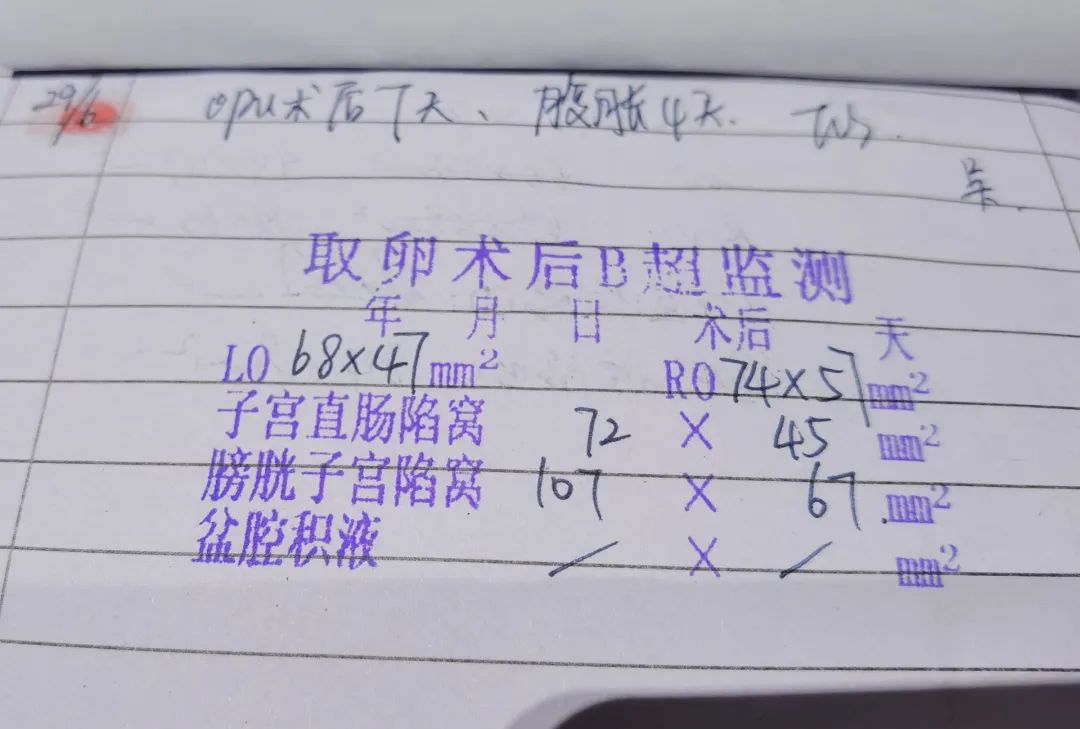 29/6 OPU术后7天、腹胀4天. TVS.
取卵术后B超监测
年 月 日 术后 天
LO 68×47 mm² RO 74×57 mm²
子宫直肠陷窝 72 × 45 mm²
膀胱子宫陷窝 107 × 67 mm²
盆腔积液 / × / mm²